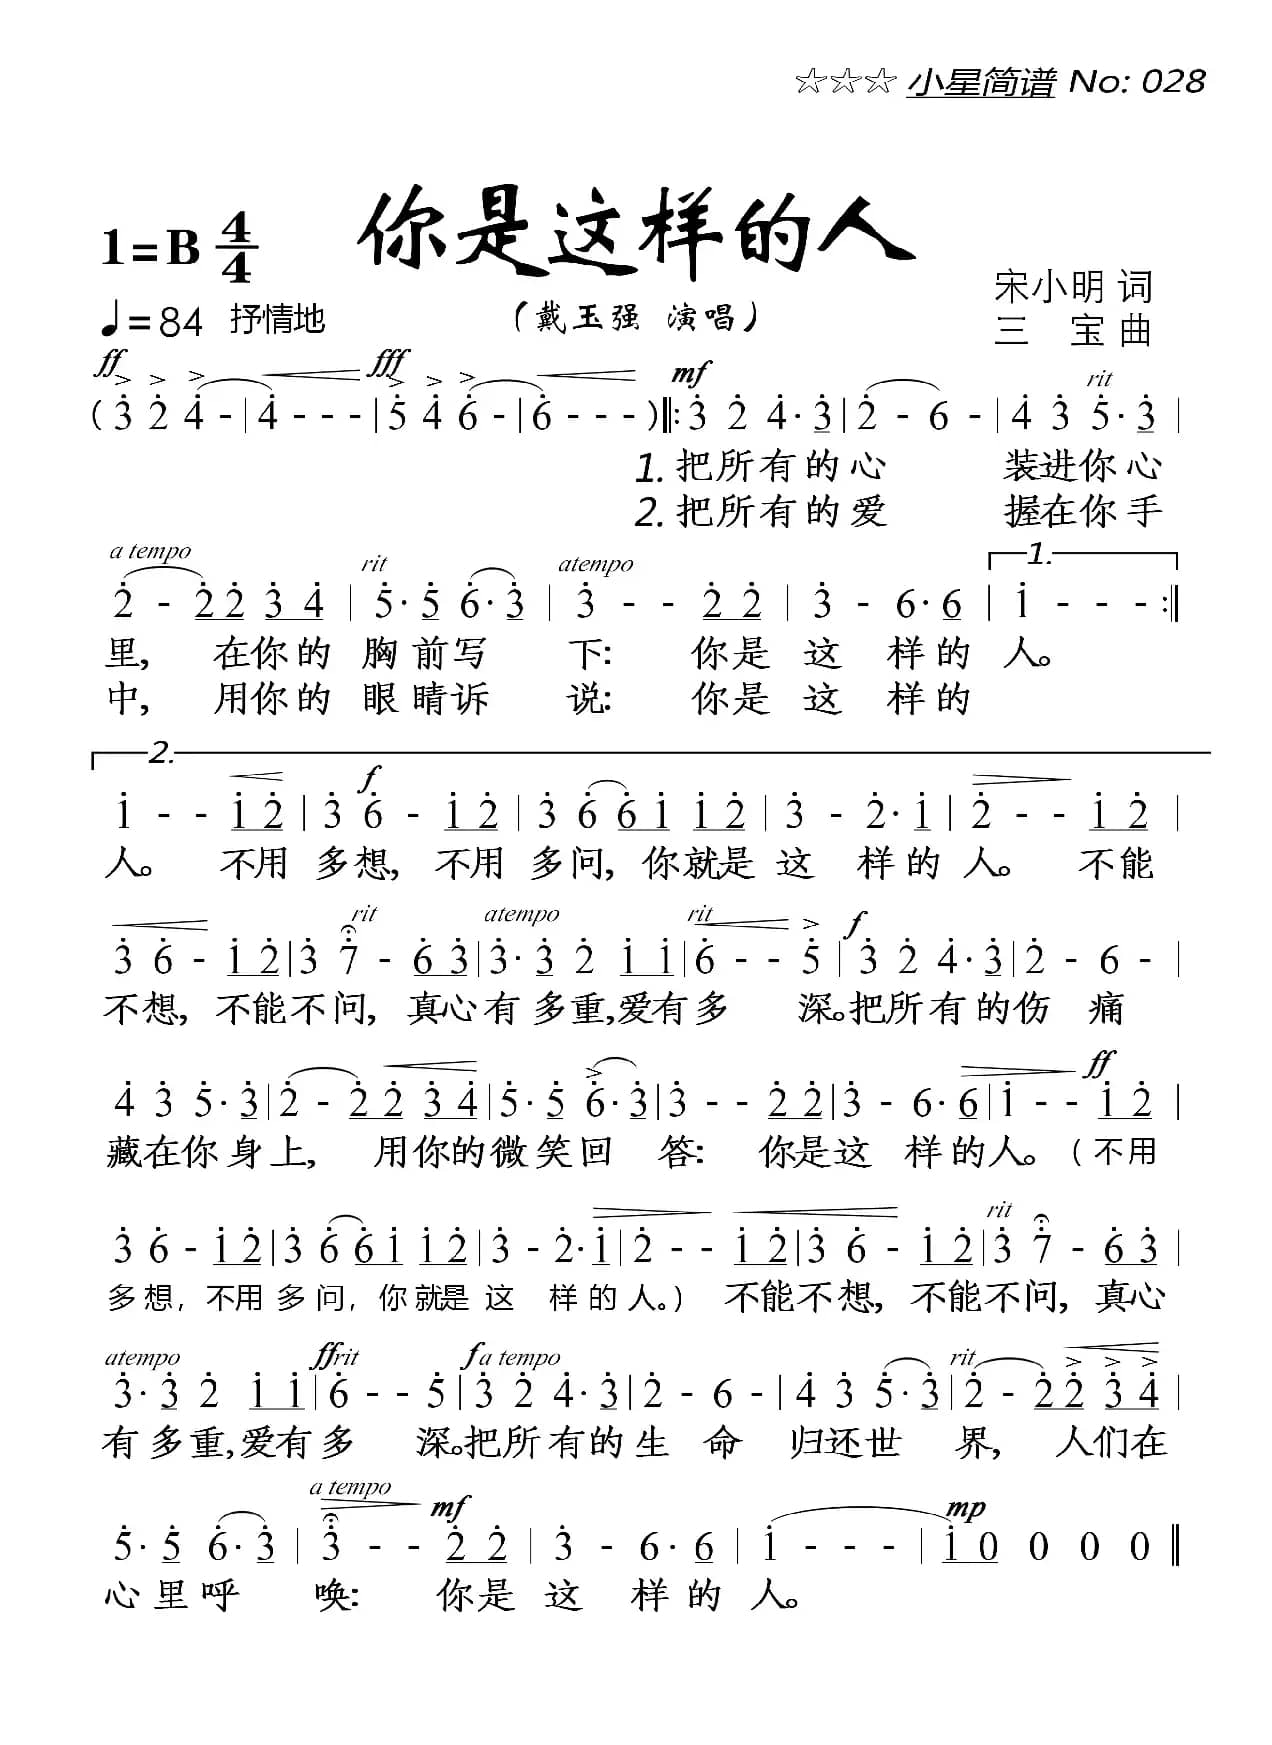 ☆☆☆ 小星简谱 No: 028
你是这样的人
1=B 4/4
宋小明 词
♩=84 抒情地 (戴玉强 演唱)
三 宝 曲
ff fff mf rit
(3 2 4 - | 4 - - - | 5 4 6 - | 6 - - - )‖: 3 2 4· 3 | 2 - 6 - | 4 3 5· 3 |
1. 把所有的心 装进你心
2. 把所有的爱 握在你手
a tempo rit atempo 1.
2 - 2 2 3 4 | 5· 5 6· 3 | 3 - - 2 2 | 3 - 6· 6 | 1 - - - :‖
里, 在你的胸前写下: 你是这样的人。
中, 用你的眼睛诉说: 你是这样的
2.
f
1 - - 1 2 | 3 6 - 1 2 | 3 6 6 1 1 2 | 3 - 2· 1 | 2 - - 1 2 |
人。 不用多想, 不用多问, 你就是这样的人。 不能
rit atempo rit f
3 6 - 1 2 | 3 7 - 6 3 | 3· 3 2 1 1 | 6 - - 5 | 3 2 4· 3 | 2 - 6 - |
不想, 不能不问, 真心有多重,爱有多深。把所有的伤痛
ff
4 3 5· 3 | 2 - 2 2 3 4 | 5· 5 6· 3 | 3 - - 2 2 | 3 - 6· 6 | 1 - - 1 2 |
藏在你身上, 用你的微笑回答: 你是这样的人。(不用
rit
3 6 - 1 2 | 3 6 6 1 1 2 | 3 - 2· 1 | 2 - - 1 2 | 3 6 - 1 2 | 3 7 - 6 3 |
多想, 不用多问, 你就是这样的人。) 不能不想, 不能不问, 真心
atempo ff rit f a tempo rit
3· 3 2 1 1 | 6 - - 5 | 3 2 4· 3 | 2 - 6 - | 4 3 5· 3 | 2 - 2 2 3 4 |
有多重,爱有多深。把所有的生命归还世界, 人们在
a tempo mf mp
5· 5 6· 3 | 3 - - 2 2 | 3 - 6· 6 | 1 - - - | 1 0 0 0 0 ‖
心里呼唤: 你是这样的人。